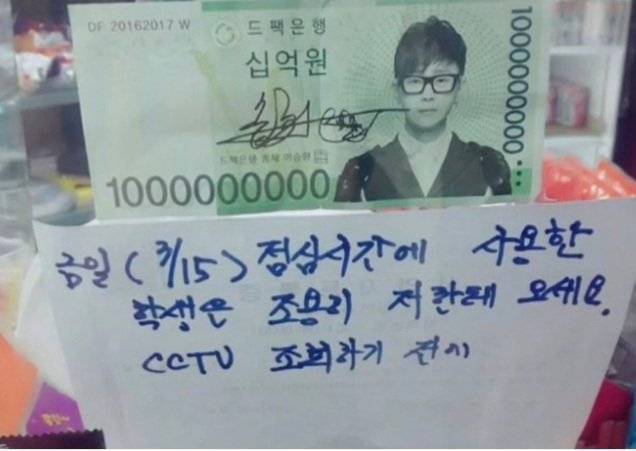 DF 20162017 W
드팩은행
십억원
드팩은행 총재 이승환
1000000000
1000000000
금일 (3/15) 점심시간에 사용한
학생은 조용히 저한태 오세요.
CCTV 조회하기 전에